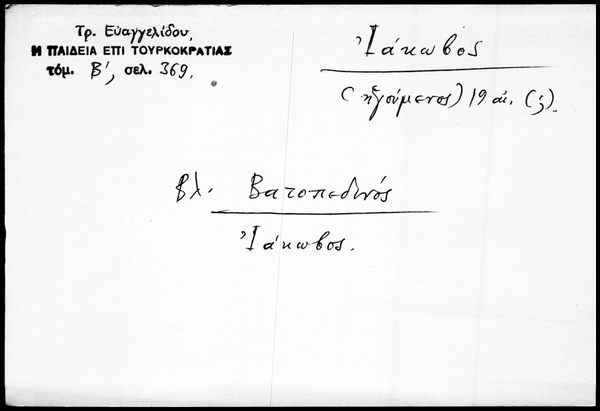 Τρ. Εὐαγγελίδου,
Η ΠΑΙΔΕΙΑ ΕΠΙ ΤΟΥΡΚΟΚΡΑΤΙΑΣ
τόμ. Β', σελ. 369.
Ἰάκωβος
(ἡγούμενος) 19 αἰ. (;).
βλ. Βατοπεδινός
Ἰάκωβος.